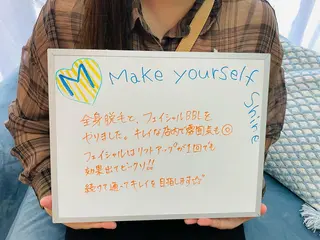 M Make yourself Shine
全身脱毛と、フェイシャルBBLを
やりました。キレイな店内で雰囲気も◎
フェイシャルはリフトアップが1回でも
効果出てビックリ!!
続けて通ってキレイを目指します☆